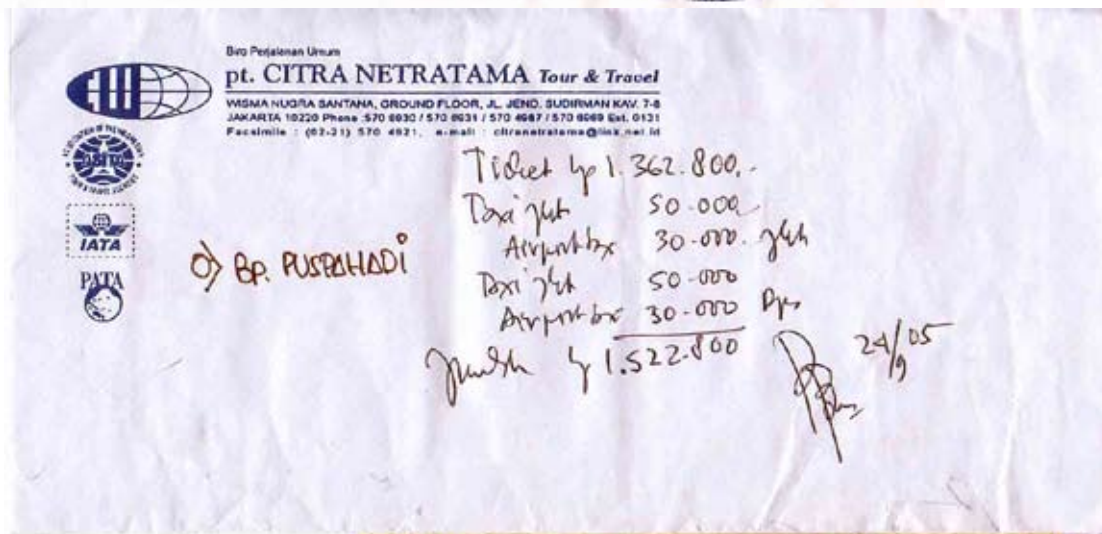 Biro Perjalanan Umum
pt. CITRA NETRATAMA Tour & Travel
WISMA NUGRA SANTANA, GROUND FLOOR, JL. JEND. SUDIRMAN KAV. 7-8
JAKARTA 10220 Phone :570 6930 / 570 6931 / 570 4987 / 570 6969 Ext. 0131
Facsimile : (62-21) 570 4921, e-mail : citranetratama@link.net.id
IATA
PATA
Bp. PUSPAHADI
Ticket Rp 1.362.800.-
Taxi Jkt 50.000
Airport tax 30.000. Jkt
Taxi Jkt 50.000
Airport tax 30.000 Dps
Jumlah Rp 1.522.800
24/9 05